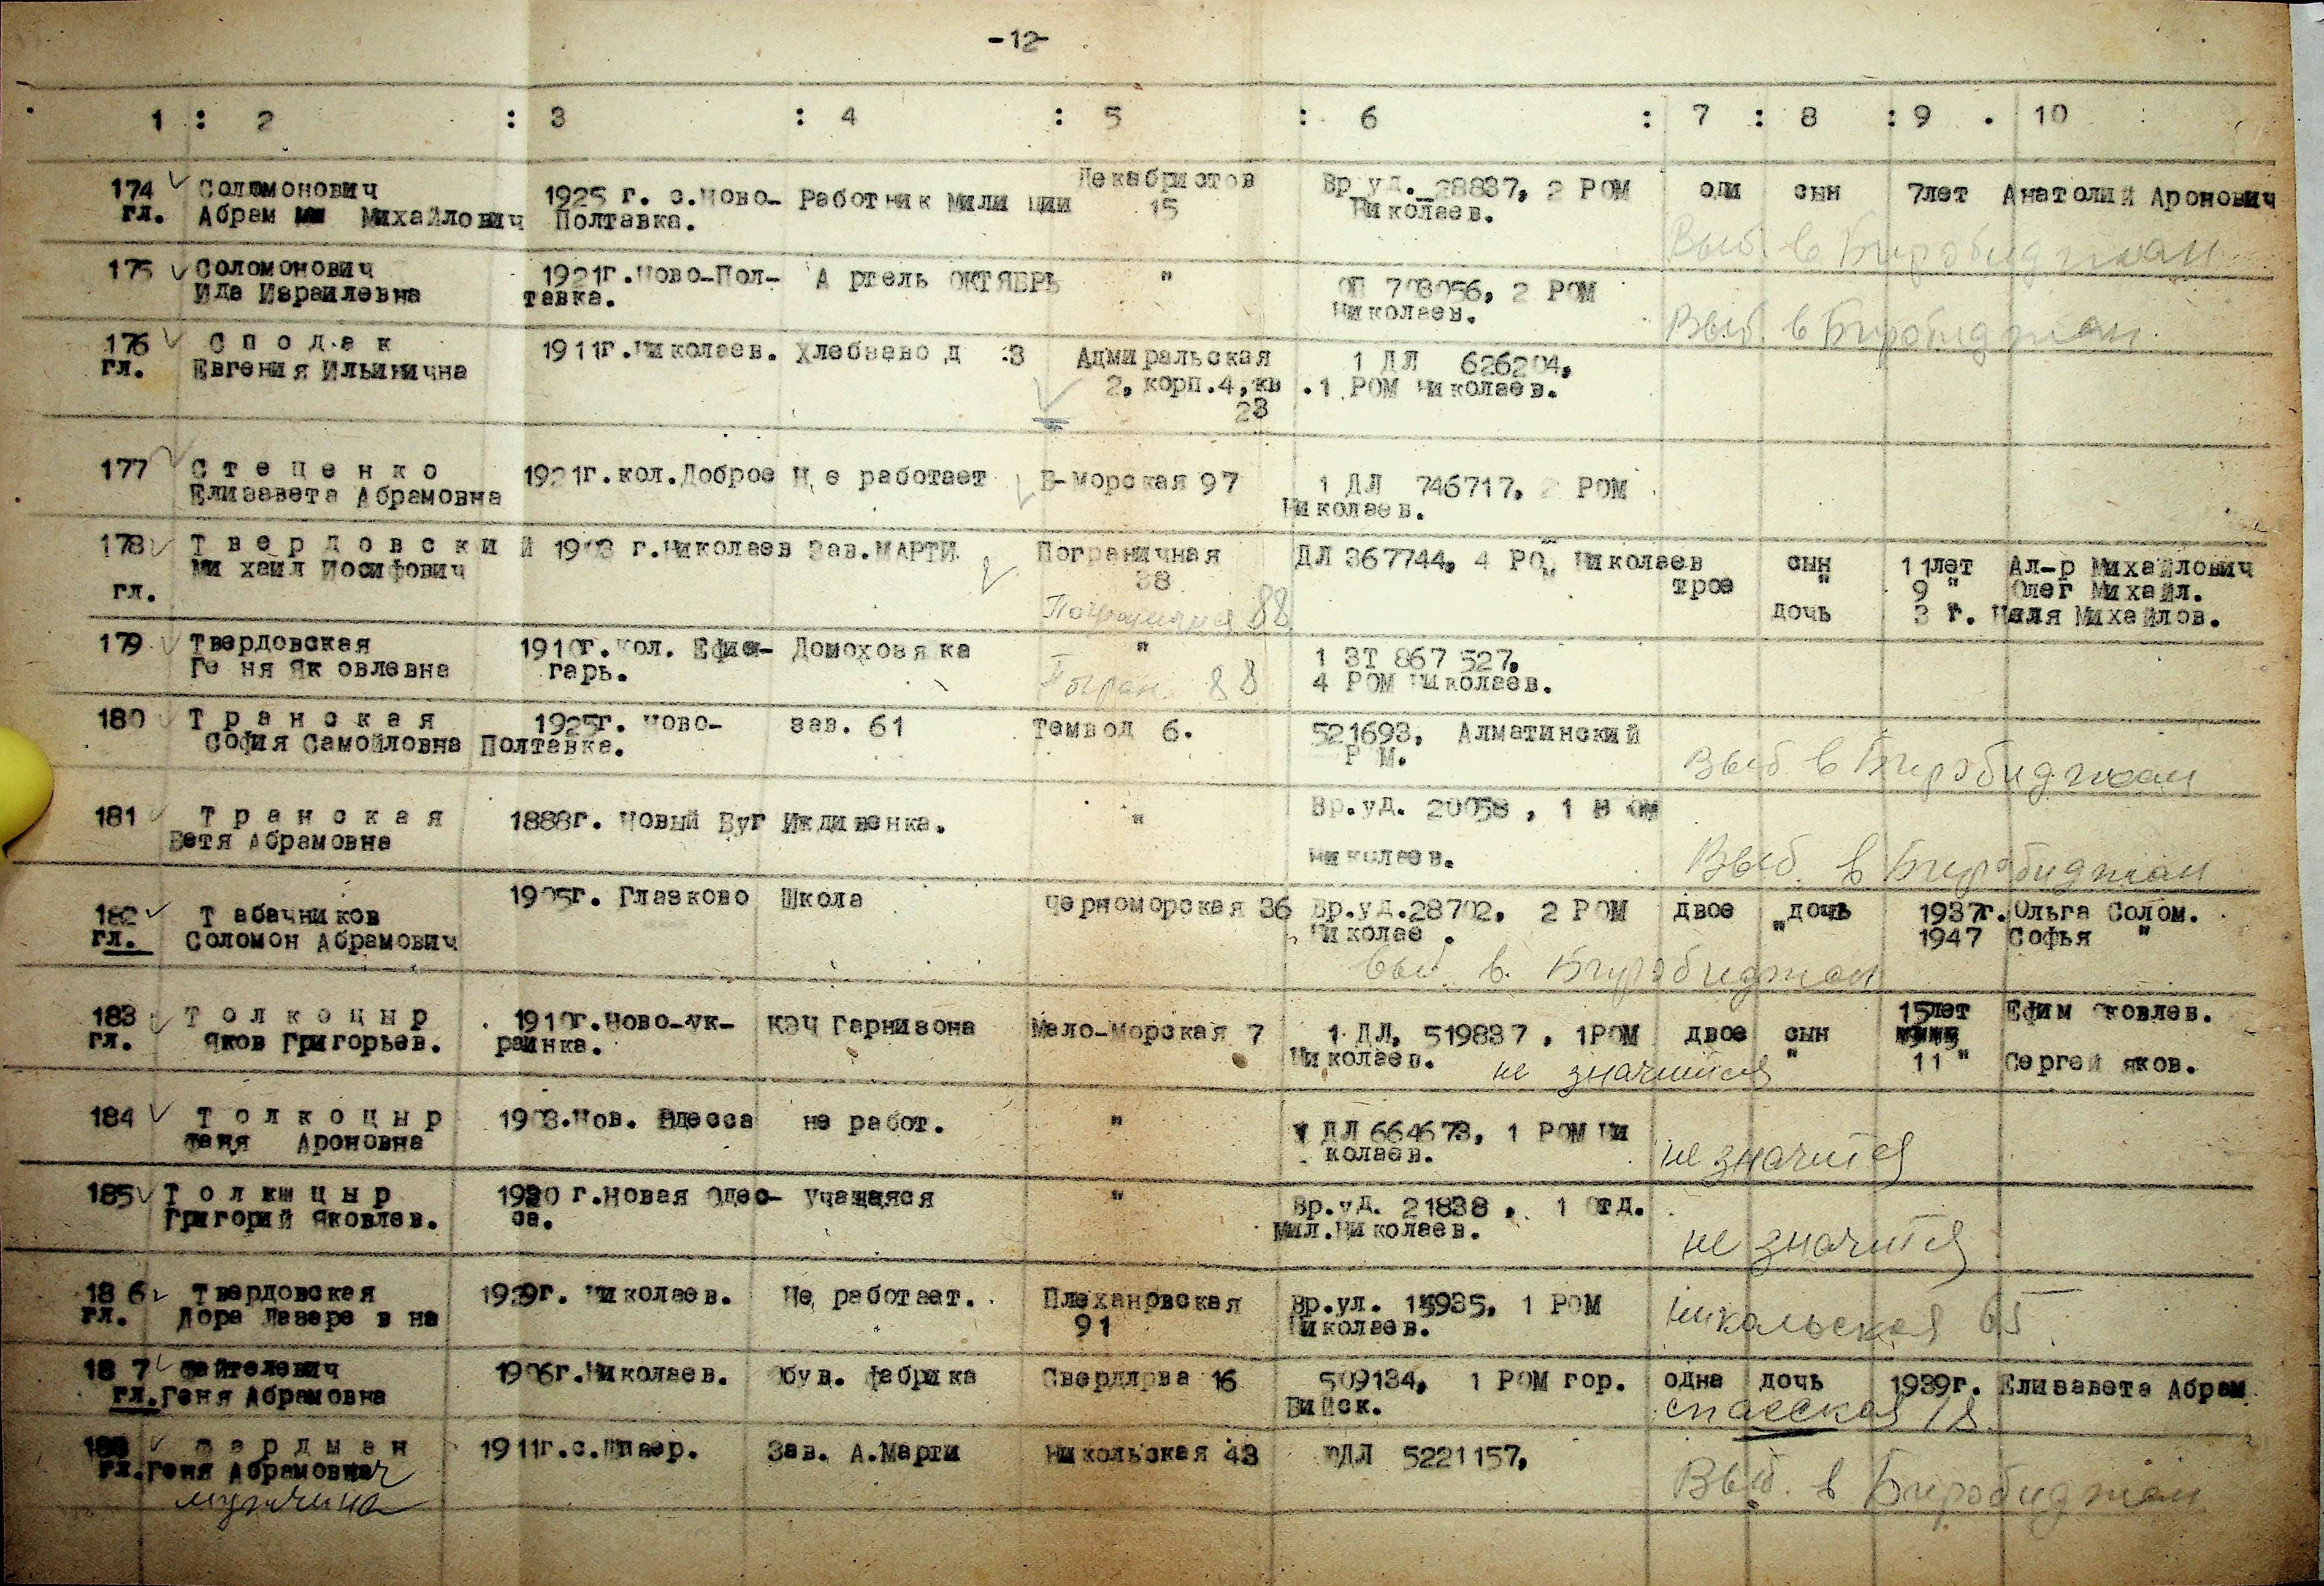 -12-
1 : 2 : 3 : 4 : 5 : 6 : 7 : 8 : 9 . 10
174 Соломонович 1925 г. с.Ново- Работник Милиции Декабристов Вр.уд. 28837, 2 РОМ оди сын 7лет Анатолий Аронович
гл. Абрам Михайлович Полтавка. 15 Николаев.
Выб. в Биробиджан
175 Соломонович 1921г.Ново-Пол- Артель ОКТЯБРЬ " ОП 708056, 2 РОМ
Ида Израилевна тавка. Николаев.
Выб. в Биробиджан
176 Сподак 1911г.Николаев. Хлебзавод 3 Адмиральская 1 ДЛ 626204,
гл. Евгения Ильинична 2, корп.4,кв. 1 РОМ Николаев.
28
177 Стеценко 1921г.кол.Доброе Не работает Б-Морская 97 1 ДЛ 746717, 2 РОМ
Елизавета Абрамовна Николаев.
178 Твердовский г.Николаев Зав.МАРТИ Пограничная ДЛ 367744, 4 РО Николаев сын 11лет Ал-р Михайлович
Михаил Иосифович 38 трое " 9 " Олег Михайл.
гл. дочь 3 г. Михайлов.
Пограничная 88
179 Твердовская 1910г.кол. Ефин- Домохозяка " 1 ЗТ 867 527,
Геня Яковлевна гарь. 4 РОМ Николаев.
Погран. 88
180 Транская 1925г. Ново- зав. 61 Темвод 6. 521693, Алматинский
София Самойловна Полтавка. Р М.
Выб в Биробиджан
181 Транская 1888г. Новый Буг Иждивенка. " Вр.уд. 20058 , 1
Бетя Абрамовна Николаев.
Выб. в Биробиджан
182 Табачников 1905г. Глазково Школа Черноморская 36 Вр.уд.28702, 2 РОМ двое дочь 1937г. Ольга Солом.
гл. Соломон Абрамович Николае . " 1947 Софья "
выб. в. Биробиджан
183 Толкоцыр 1910г.Ново-ук- КЭЧ Гарнизона Мало-Морская 7 1 ДЛ. 519837 , 1РОМ двое сын 15лет Ефим Яковлев.
гл. Яков Григорьев. раинка. Николаев. " 11 " Сергей яков.
не значится
184 Толкоцыр Нов. Одесса не работ. " ДЛ 664673, 1 РОМ Ни
Ароновна колаев.
не значится
185 Толкоцыр 1930 г.Новая Одес- Учащаяся " Вр.уд. 21838 , 1 Отд.
Григорий Яковлев. са. Мил.Николаев.
не значится
186 Твердовская 1929г. Николаев. Не работает. Плехановская Вр.уд. 15935, 1 РОМ
гл. Дора Лазаревна 91 Николаев.
Никольская 65
187 Файтелевич 1906г.Николаев. Обув. фабрика Свердлова 16 509134, 1 РОМ гор. одна дочь 1939г. Елизавета Абрам.
гл. Геня Абрамовна Бийск.
Спасская 18
188 Фардман 1911г.с. Зав. А.Марти Никольская 43 ДЛ 5221157,
гл. Геня Абрамович
мужчина
Выб. в Биробиджан